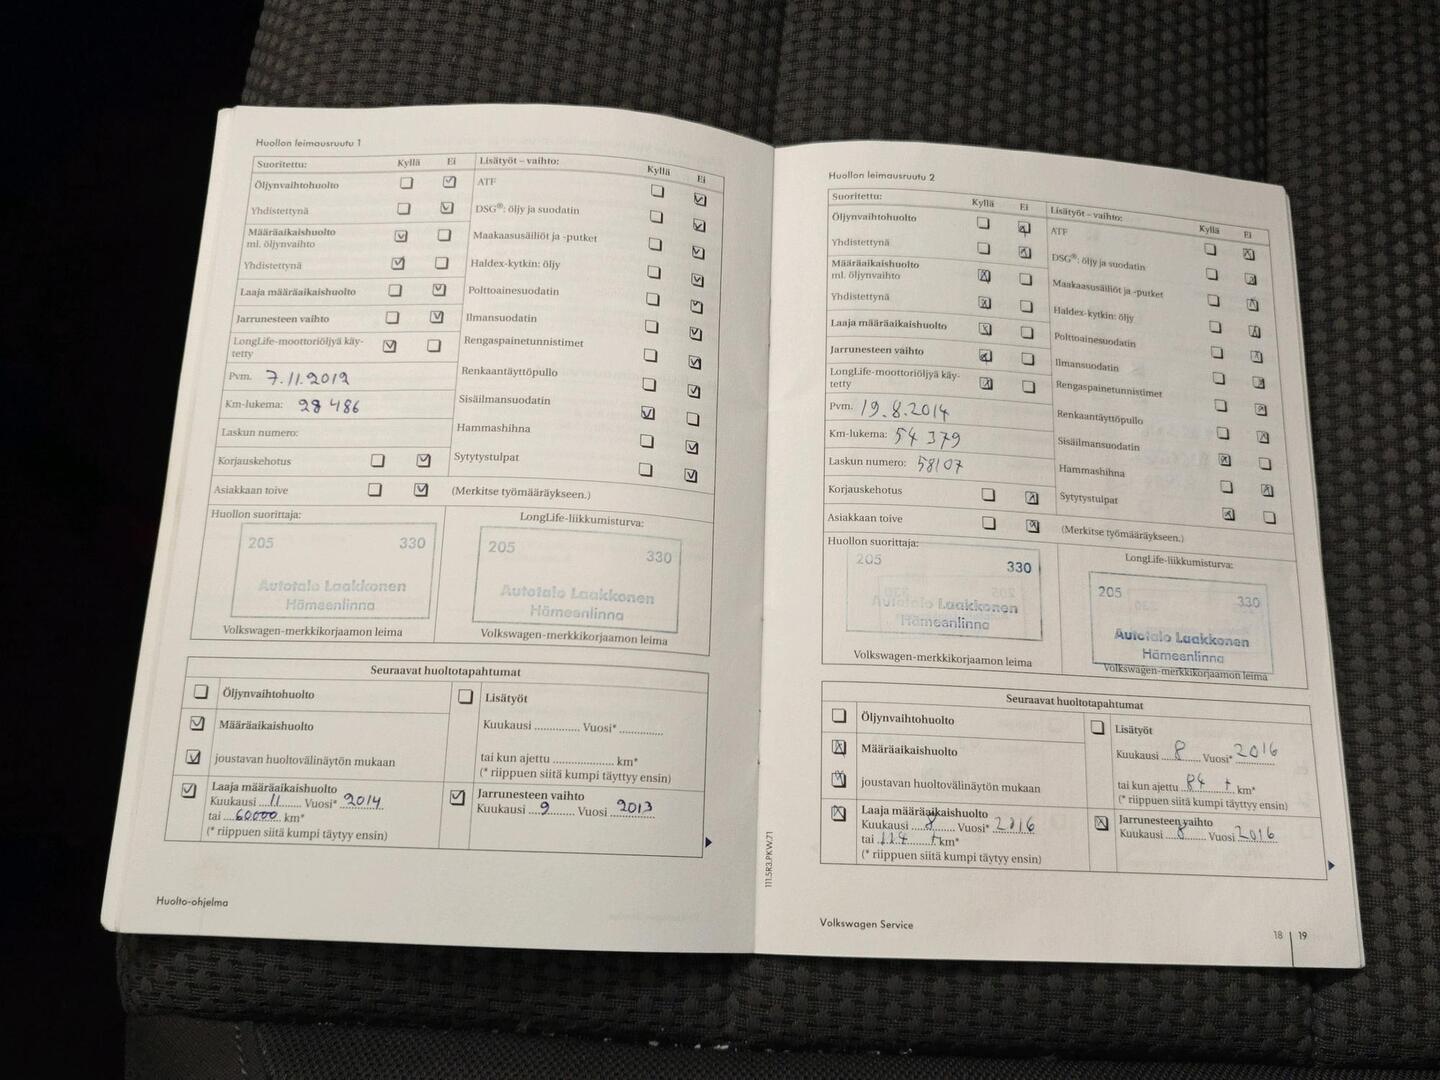 Huollon leimausruutu 1
Suoritettu: Kyllä Ei
Öljynvaihtohuolto
Yhdistettynä
Määräaikaishuolto
ml. öljynvaihto
Yhdistettynä
Laaja määräaikaishuolto
Jarrunesteen vaihto
LongLife-moottoriöljyä käy-
tetty
Pvm. 7.11.2012
Km-lukema: 28 486
Laskun numero:
Korjauskehotus
Asiakkaan toive
Lisätyöt – vaihto: Kyllä Ei
ATF
DSG®: öljy ja suodatin
Maakaasusäiliöt ja -putket
Haldex-kytkin: öljy
Polttoainesuodatin
Ilmansuodatin
Rengaspainetunnistimet
Renkaantäyttöpullo
Sisäilmansuodatin
Hammashihna
Sytytystulpat
(Merkitse työmääräykseen.)
Huollon suorittaja:
205 330
Autotalo Laakkonen
Hämeenlinna
Volkswagen-merkkikorjaamon leima
LongLife-liikkumisturva:
205 330
Autotalo Laakkonen
Hämeenlinna
Volkswagen-merkkikorjaamon leima
Seuraavat huoltotapahtumat
Öljynvaihtohuolto
Määräaikaishuolto
joustavan huoltovälinäytön mukaan
Laaja määräaikaishuolto
Kuukausi 11 Vuosi* 2014
tai 60000 km*
(* riippuen siitä kumpi täytyy ensin)
Lisätyöt
Kuukausi .............. Vuosi* ..............
tai kun ajettu .................... km*
(* riippuen siitä kumpi täyttyy ensin)
Jarrunesteen vaihto
Kuukausi 9 Vuosi 2013
Huolto-ohjelma
111.5R3.PKW.71
Huollon leimausruutu 2
Suoritettu: Kyllä Ei
Öljynvaihtohuolto
Yhdistettynä
Määräaikaishuolto
ml. öljynvaihto
Yhdistettynä
Laaja määräaikaishuolto
Jarrunesteen vaihto
LongLife-moottoriöljyä käy-
tetty
Pvm. 19.8.2014
Km-lukema: 54 379
Laskun numero: 58107
Korjauskehotus
Asiakkaan toive
Lisätyöt – vaihto: Kyllä Ei
ATF
DSG®: öljy ja suodatin
Maakaasusäiliöt ja -putket
Haldex-kytkin: öljy
Polttoainesuodatin
Ilmansuodatin
Rengaspainetunnistimet
Renkaantäyttöpullo
Sisäilmansuodatin
Hammashihna
Sytytystulpat
(Merkitse työmääräykseen.)
Huollon suorittaja:
205 330
Autotalo Laakkonen
Hämeenlinna
Volkswagen-merkkikorjaamon leima
LongLife-liikkumisturva:
205 330
Autotalo Laakkonen
Hämeenlinna
Volkswagen-merkkikorjaamon leima
Seuraavat huoltotapahtumat
Öljynvaihtohuolto
Määräaikaishuolto
joustavan huoltovälinäytön mukaan
Laaja määräaikaishuolto
Kuukausi 8 Vuosi* 2016
tai 114 t km*
(* riippuen siitä kumpi täytyy ensin)
Lisätyöt
Kuukausi 8 Vuosi* 2016
tai kun ajettu 84 t km*
(* riippuen siitä kumpi täyttyy ensin)
Jarrunesteen vaihto
Kuukausi 8 Vuosi 2016
Volkswagen Service
18 | 19